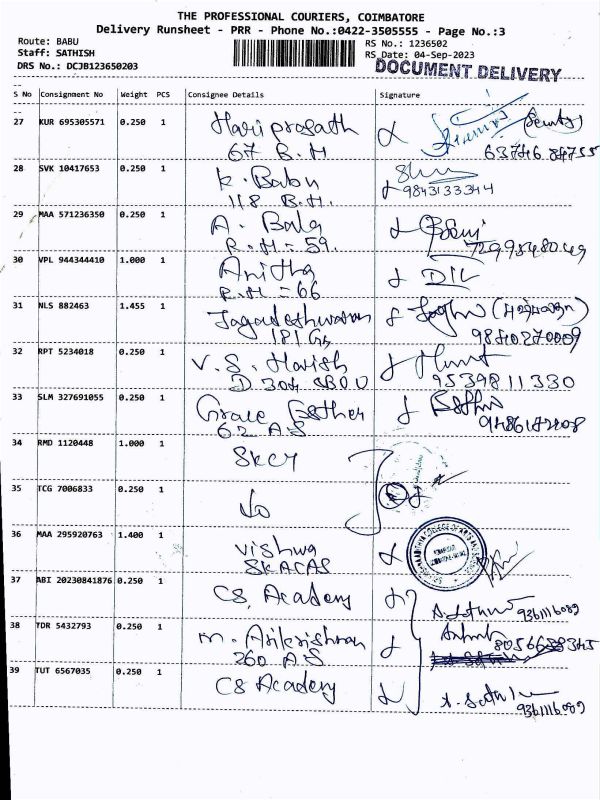 THE PROFESSIONAL COURIERS, COIMBATORE
Delivery Runsheet - PRR - Phone No.:0422-3505555 - Page No.:3
Route: BABU RS No.: 1236502
Staff: SATHISH RS Date: 04-Sep-2023
DRS No.: DCJB123650203 DOCUMENT DELIVERY
S No Consignment No Weight PCS Consignee Details Signature
27 KUR 695305571 0.250 1 Hari prasath
67 B.H
28 SVK 10417653 0.250 1 K. Babu
118 B.H. 9843133344
29 MAA 571236350 0.250 1 A. Bala
R.H = 59. 7299548049
30 VPL 944344410 1.000 1 Anitha
R.H = 66
31 NLS 882463 1.455 1 Jagadeshwaran
9840270009
32 RPT 5234018 0.250 1 V. S. Harish
D 304 9539811330
33 SLM 327691055 0.250 1 Grace Esther
62 A.S
34 RMD 1120448 1.000 1 SKCT
35 TCG 7006833 0.250 1
36 MAA 295920763 1.400 1 Vishwa
SKACAS
37 ABI 20230841876 0.250 1 CS Academy
9361116089
38 TDR 5432793 0.250 1 M. Arikrishnan
260 A.S 8056688345
39 TUT 6567035 0.250 1 CS Academy
9361116089